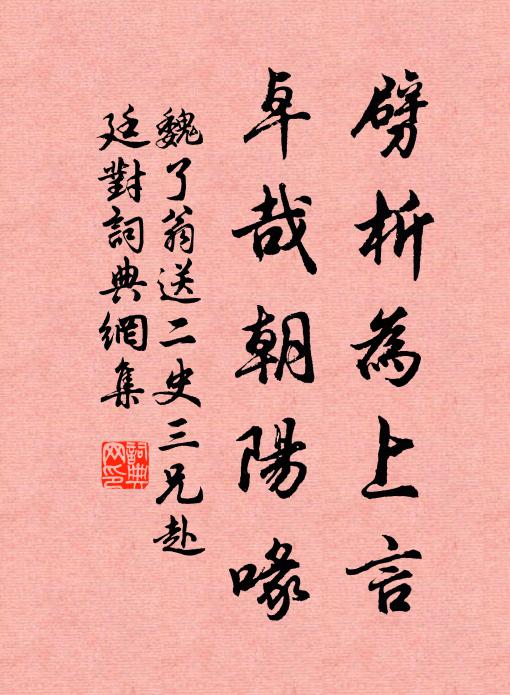 劈析為上言
卓哉朝陽喙
魏了翁送二史三兄赴
廷對詞典網集
詞典
网印